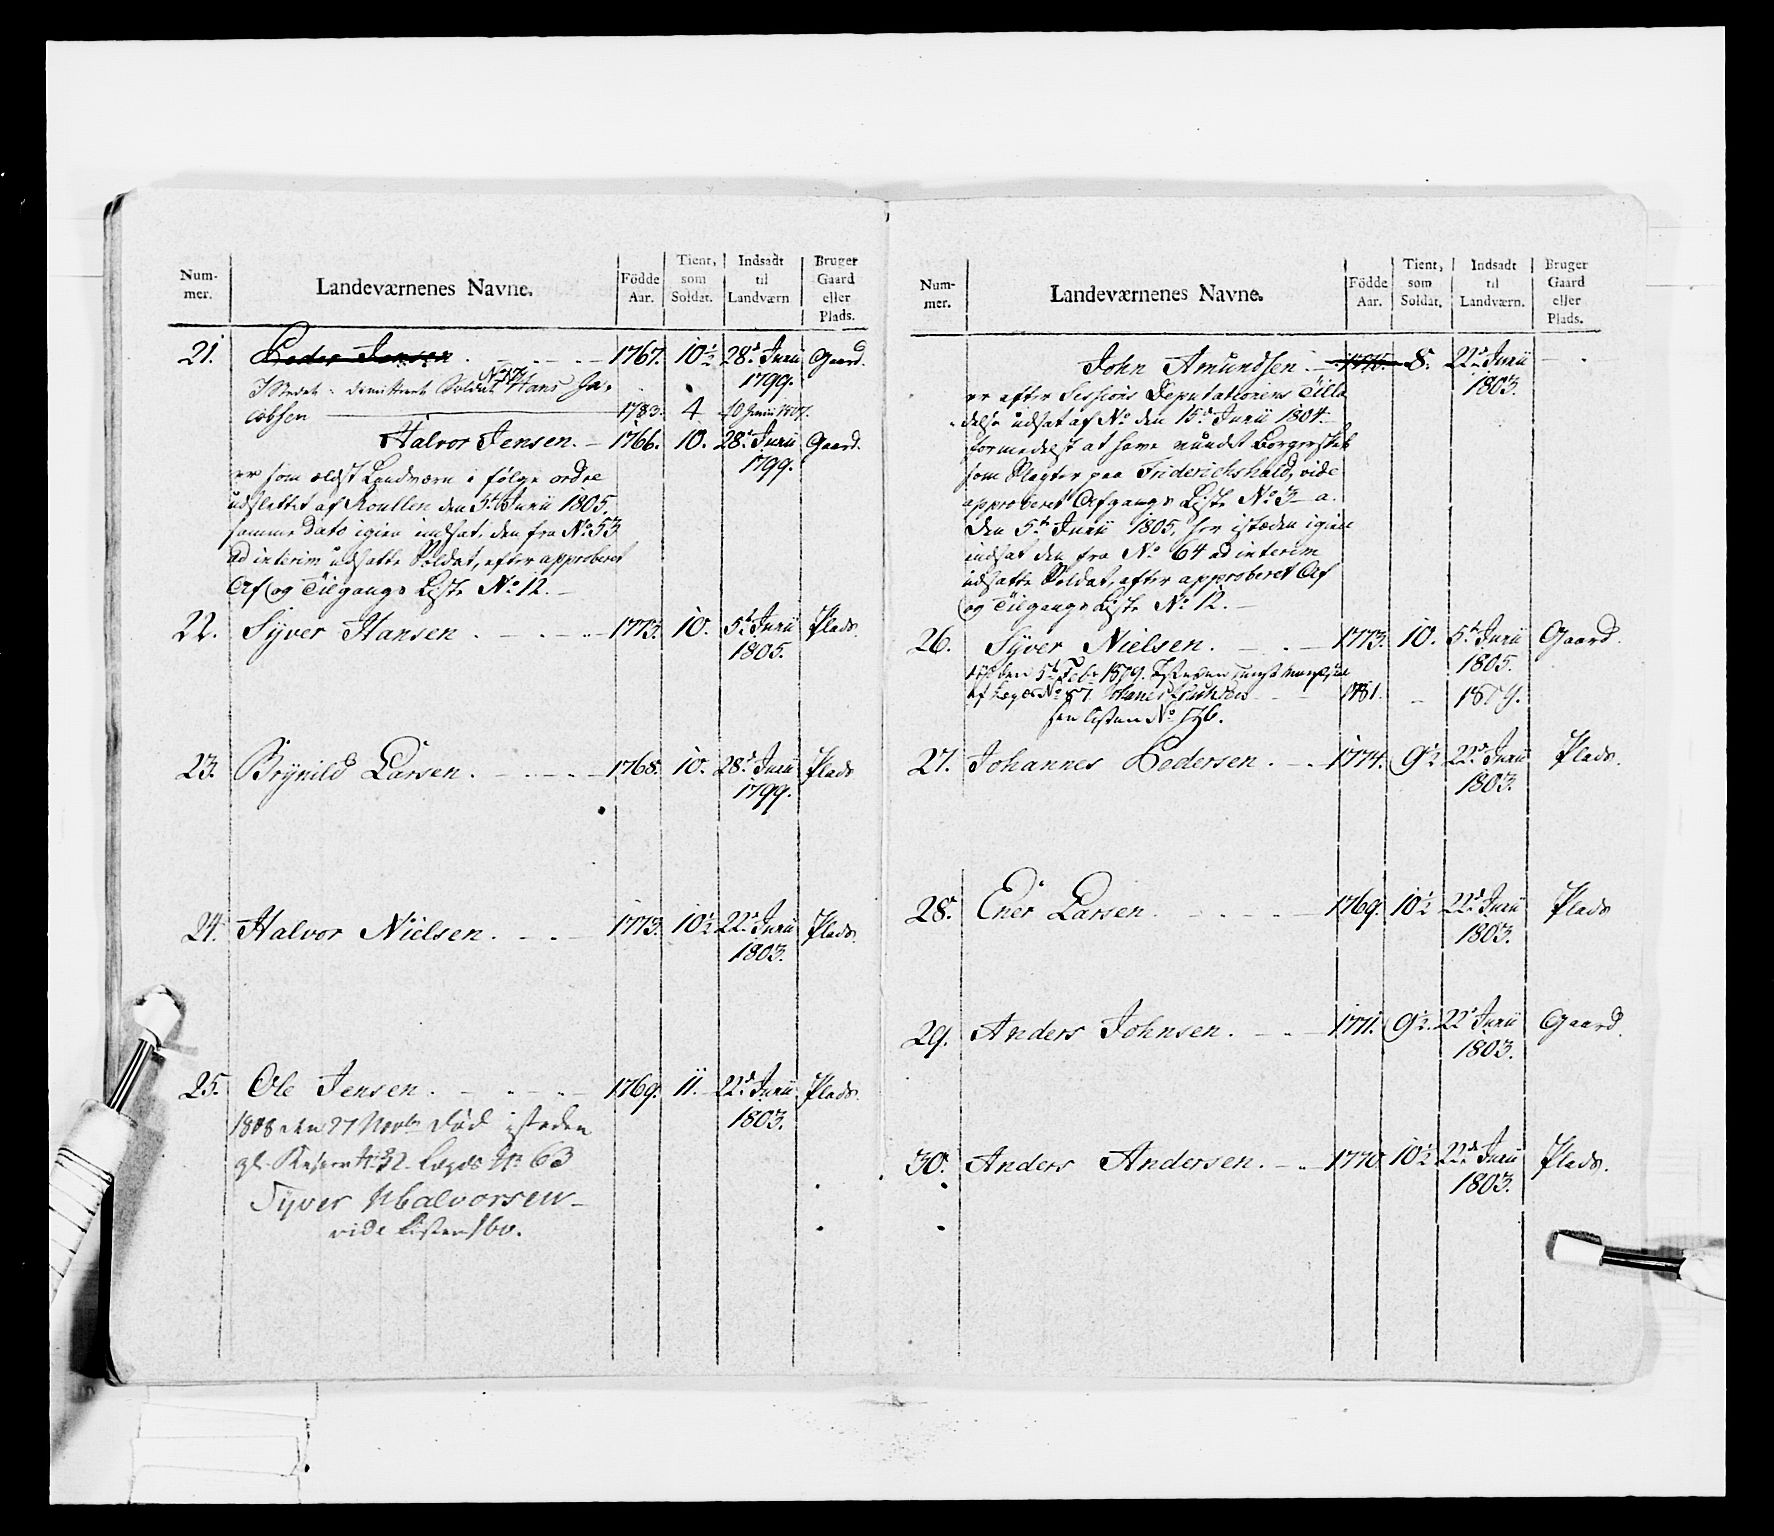 Num-
mer.
Landeværnenes Navne.
Födde
Aar.
Tient,
som
Soldat.
Indsadt
til
Landværn
Bruger
Gaard
eller
Plads.
21. Peder Jensen 1767. 10½ 28de Junii Gaard.
1799.
I Stedet demitteret Soldat Hans Ja-
cobsen 1783. 4 10 Junii 1807.
Halvor Jensen. 1766. 10. 28de Junii Gaard.
1799.
er som ældst Landværn i følge ordre
udslettet af Roullen den 5te Junii 1805.
samme Dato igien indsat, den fra No 53
ad interim udsatte Soldat, efter approberet
Af og Tilgangs Liste No 12.
22. Syver Hansen 1773. 10. 5te Junii Plads.
1805.
23. Brynild Larsen. 1768. 10. 28de Junii Plads
1799.
24. Halvor Nielsen. 1773. 10½ 22de Junii Plads.
1803.
25. Ole Jensen 1769. 11. 22de Junii Plads.
1803.
1808 den 27 Novbr Død isteden
gl. Reserv No 32 Lægds No 63
Syver Halvorsen
vide Listen 160.
Num-
mer.
Landeværnenes Navne.
Födde
Aar.
Tient,
som
Soldat.
Indsadt
til
Landværn.
Bruger
Gaard
eller
Plads.
John Amundsen 8. 22de Junii
1803.
er efter Sessions Deputationens Tilla
delse udsat af No den 15de Junii 1804
formedelst at have vundet Borgerskab
som Slagter paa Friderichshald, vide
approberet Afgangs Liste No 3 a.
Den 5te Junii 1805, her isteden igien
indsat den fra No 64 ad interim
udsatte Soldat, efter approberet Af
og Tilgangs Liste No 12.
26. Syver Nielsen. 1773. 10. 5te Junii Gaard.
1805.
død den 5te Febr 1809. Isteden
af Lægd No 87 Johannes 1781. 1809.
see Listen No 176.
27. Johannes Pedersen 1774. 9½ 22de Junii Plads.
1803.
28. Ener Larsen 1769. 10½ 22de Junii Plads
1803.
29. Anders Johnsen. 1771. 9½ 22de Junii Gaard
1803.
30. Anders Andersen. 1770 10½ 22de Junii Plads.
1803.